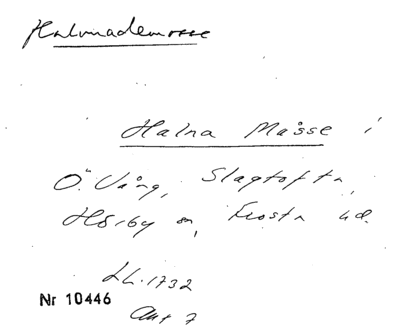 Halmademosse
Halna Måsse i
Ö. Vång, Slagtofta,
Hörby sn, Frosta hd.
LL. 1732
Nr 10446
Akt 7